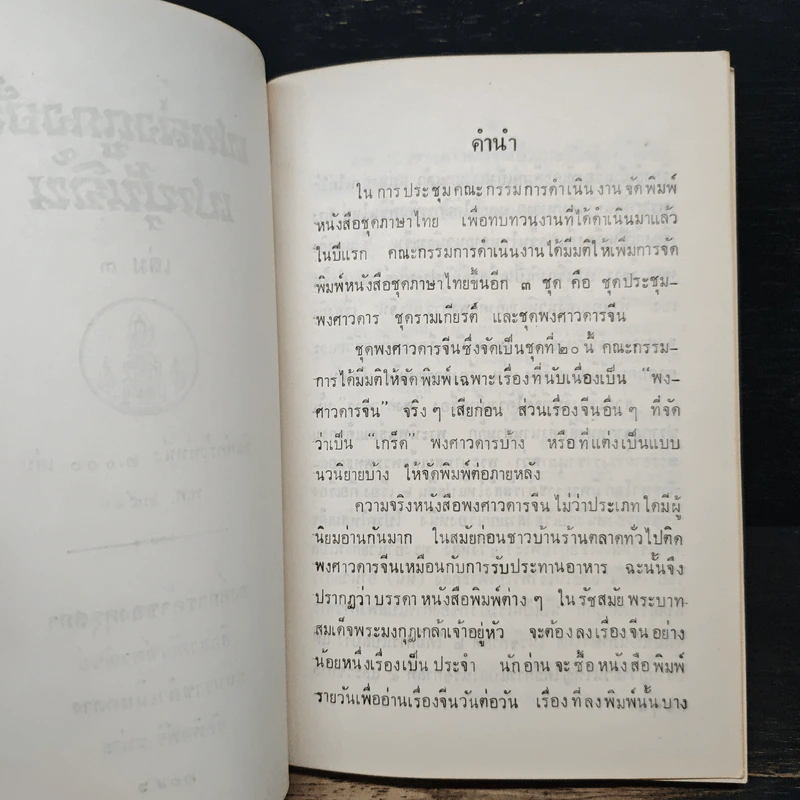 เล่ม ๓
คำนำ
ในการประชุมคณะกรรมการดำเนินงานจัดพิมพ์
หนังสือชุดภาษาไทย เพื่อทบทวนงานที่ได้ดำเนินมาแล้ว
ในปีแรก คณะกรรมการดำเนินงานได้มีมติให้เพิ่มการจัด
พิมพ์หนังสือชุดภาษาไทยขึ้นอีก ๓ ชุด คือ ชุดประชุม-
พงศาวดาร ชุดรามเกียรติ์ และชุดพงศาวดารจีน
ชุดพงศาวดารจีนซึ่งจัดเป็นชุดที่ ๒๐ นี้ คณะกรรม-
การได้มีมติให้จัดพิมพ์เฉพาะเรื่องที่นับเนื่องเป็น “พง-
ศาวดารจีน” จริง ๆ เสียก่อน ส่วนเรื่องจีนอื่น ๆ ที่จัด
ว่าเป็น “เกร็ด” พงศาวดารบ้าง หรือที่แต่งเป็นแบบ
นวนิยายบ้าง ให้จัดพิมพ์ต่อภายหลัง
ความจริงหนังสือพงศาวดารจีน ไม่ว่าประเภทใดมีผู้
นิยมอ่านกันมาก ในสมัยก่อนชาวบ้านร้านตลาดทั่วไปติด
พงศาวดารจีนเหมือนกับการรับประทานอาหาร ฉะนั้นจึง
ปรากฏว่าบรรดาหนังสือพิมพ์ต่าง ๆ ในรัชสมัยพระบาท-
สมเด็จพระมงกุฎเกล้าเจ้าอยู่หัว จะต้องลงเรื่องจีนอย่าง
น้อยหนึ่งเรื่องเป็นประจำ นักอ่านจะซื้อหนังสือพิมพ์
รายวันเพื่ออ่านเรื่องจีนวันต่อวัน เรื่องที่ลงพิมพ์นั้นบาง